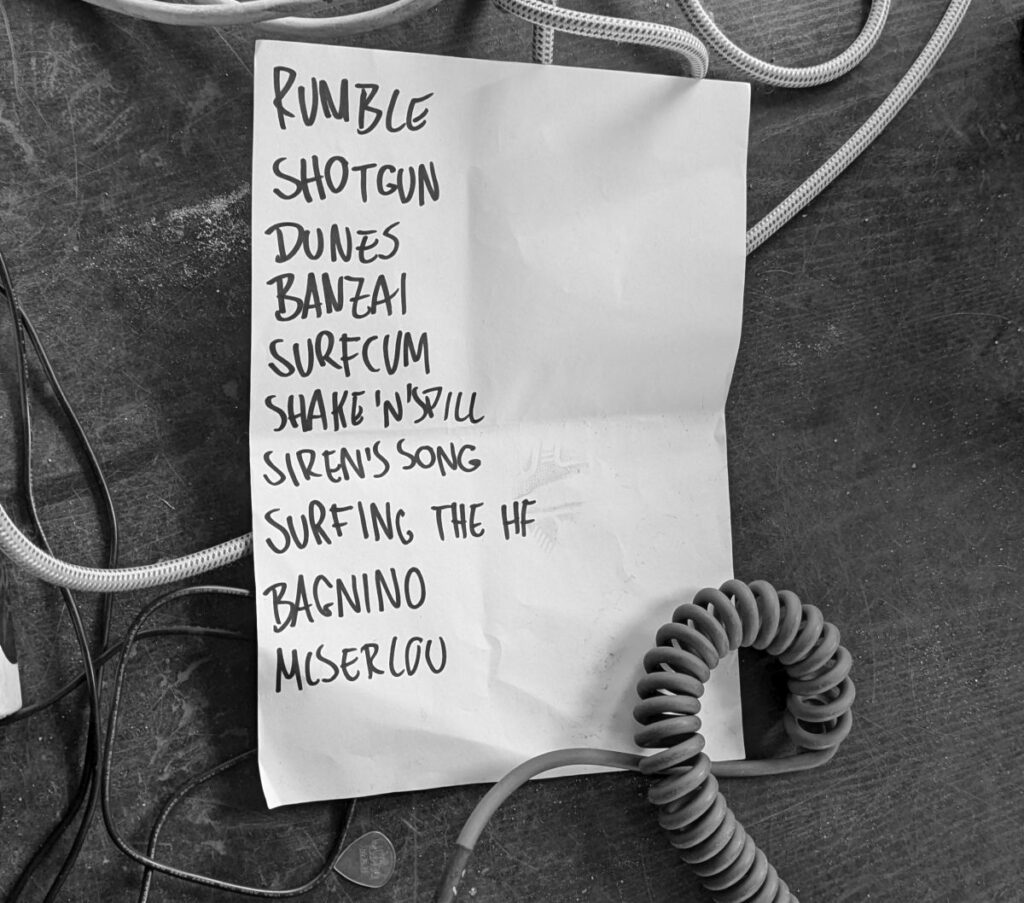 RUMBLE
SHOTGUN
DUNES
BANZAI
SURFCUM
SHAKE 'N' SPILL
SIREN'S SONG
SURFING THE HF
BAGNINO
MISERLOU